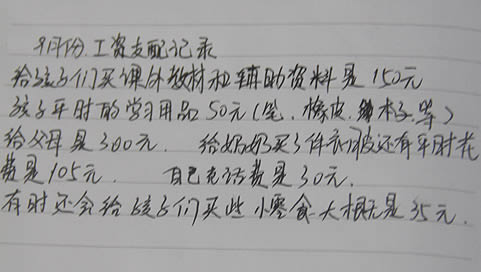 9月份工资支配记录
给孩子们买课外教材和辅助资料是150元
孩子平时的学习用品50元(笔、橡皮、本子、等)
给父母是300元. 给奶奶买了件衣服还有平时花
费是105元. 自己电话费是30元.
有时还会给孩子们买些小零食大概是35元.